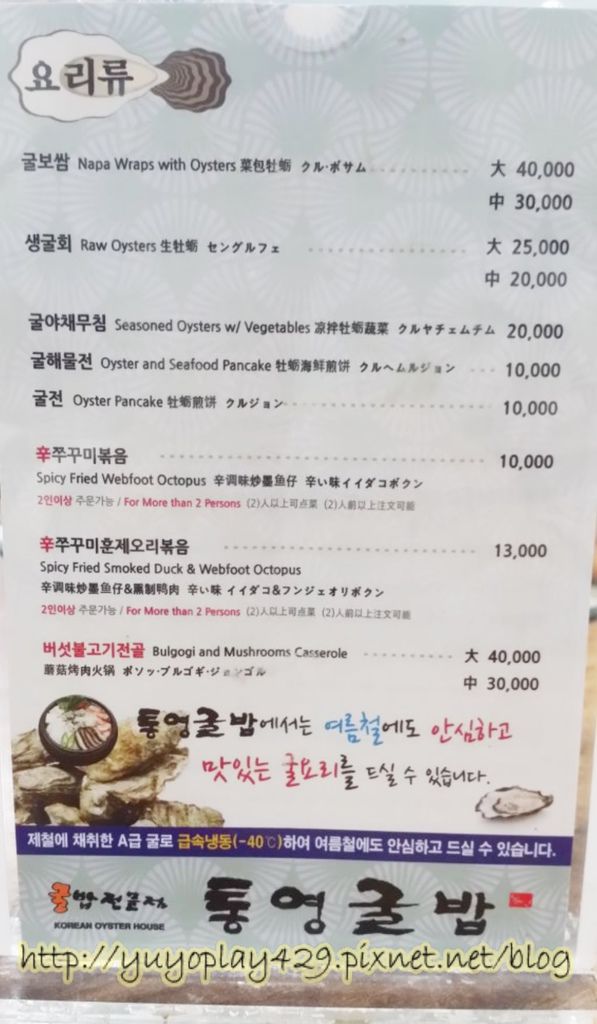 요리류
굴보쌈 Napa Wraps with Oysters 菜包牡蛎 クル·ボサム 大 40,000
中 30,000
생굴회 Raw Oysters 生牡蛎 セングルフェ 大 25,000
中 20,000
굴야채무침 Seasoned Oysters w/ Vegetables 凉拌牡蛎蔬菜 クルヤチェムチム 20,000
굴해물전 Oyster and Seafood Pancake 牡蛎海鲜煎饼 クルヘムルジョン 10,000
굴전 Oyster Pancake 牡蛎煎饼 クルジョン 10,000
辛쭈꾸미볶음 10,000
Spicy Fried Webfoot Octopus 辛调味炒墨鱼仔 辛い味イイダコボクン
2인이상 주문가능 / For More than 2 Persons (2)人以上可点菜 (2)人前以上注文可能
辛쭈꾸미훈제오리볶음 13,000
Spicy Fried Smoked Duck & Webfoot Octopus
辛调味炒墨鱼仔&熏制鸭肉 辛い味 イイダコ&フンジェオリボクン
2인이상 주문가능 / For More than 2 Persons (2)人以上可点菜 (2)人前以上注文可能
버섯불고기전골 Bulgogi and Mushrooms Casserole 大 40,000
蘑菇烤肉火锅 ポソッ·ブルゴギ·ジョンゴル 中 30,000
통영굴밥에서는 여름철에도 안심하고
맛있는 굴요리를 드실 수 있습니다.
제철에 채취한 A급 굴로 급속냉동(-40℃)하여 여름철에도 안심하고 드실 수 있습니다.
굴밥전문점 통영굴밥
KOREAN OYSTER HOUSE
http://yuyoplay429.pixnet.net/blog